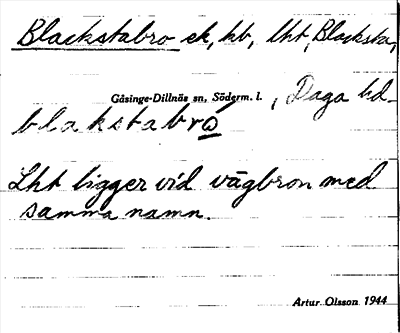 Blackstabro ek, kb, lht, Blackska,
Gåsinge-Dillnäs sn, Söderm. l. , Daga hd
blakstabro
Lht ligger vid vägbron med
samma namn.
Artur Olsson 1944